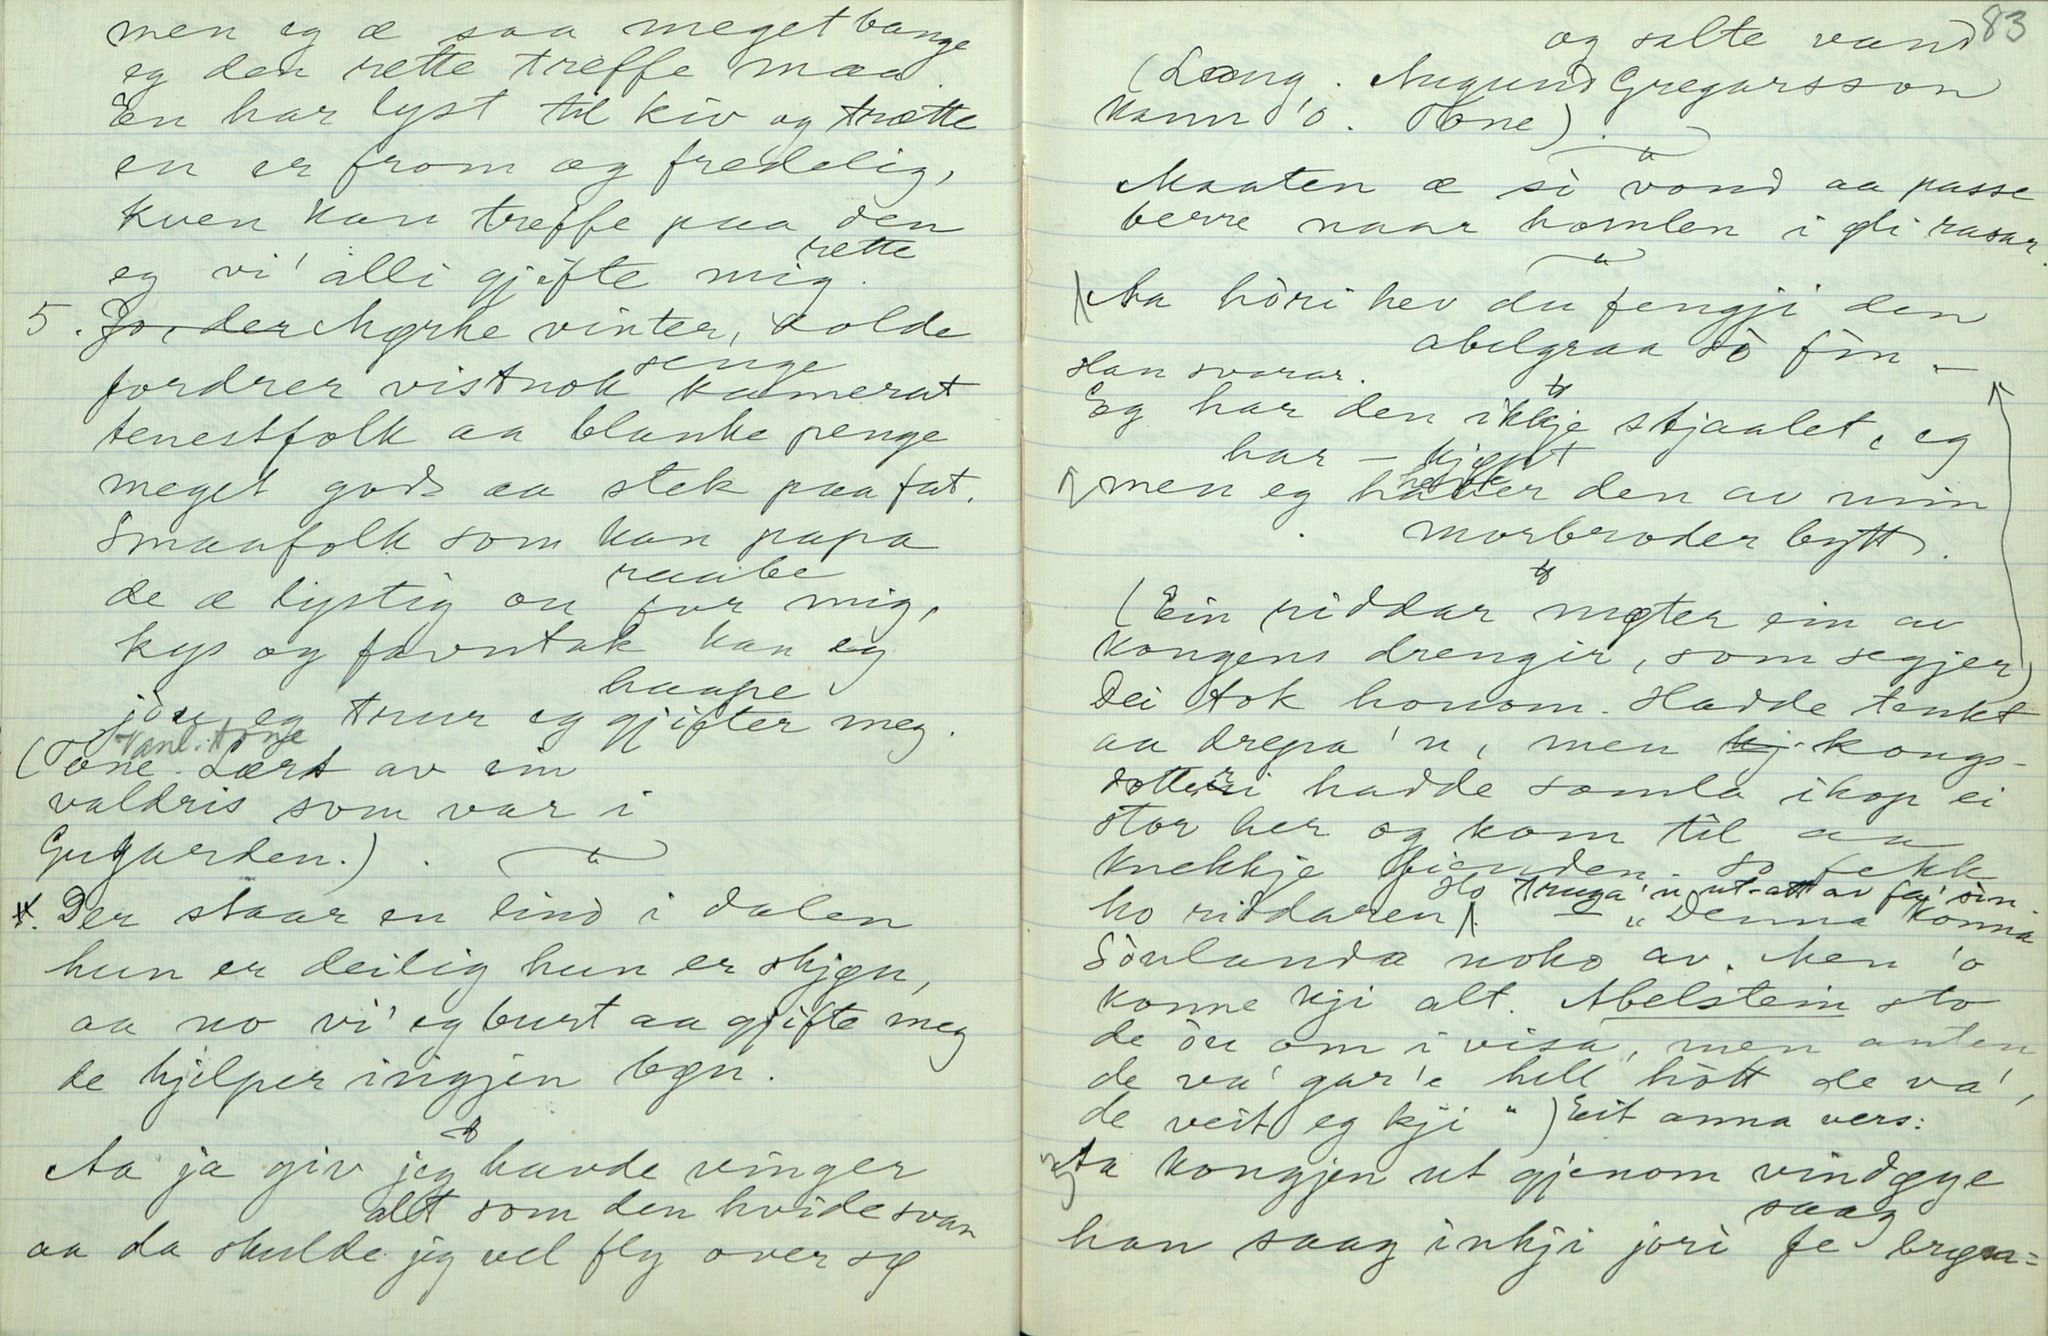 men eg æ saa meget bange
eg den rette treffe maa.
En har lyst til kiv og trætte
en er from og fredelig,
kven kan treffe paa den
rette
eg vi' alli gjifte mig.
5. Jo, der Mørke vinter, kolde
senge
fordrer vistnok kamerat
tenestfolk aa blanke penge
meget gods aa stek paa fat.
Smaafolk som kan papa
raabe
de æ lystig ou for mig,
kys og favntak kan eg
haape
jou, eg truur eg gjifter meg.
Vanl. tone
(Tone. Lært av ein
valdris som var i
Gugarden.)
Der staar en lind i dalen
hun er deilig hun er skjøn,
aa no vi' eg burt aa gjifte meg
de hjelper ingjen bøn.
Aa ja giv jeg havde vinger
alt som den hvide svan
aa da skulde jeg vel fly over sø
83
og salte vand
(Lang. Augund Gregarsson
kann 'o. Tone).
Maaten æ si vond aa passe
berre naar homlen i øli rasar.
Aa hòri hev du fengji den
abelgraa sò fin –
Han svarar.
Eg har den ikkje stjaalet, eg
har – kjøpt
hever
men eg haver den av min
morbroder bytt.
(Ein riddar møter ein av
kongens drengir, som segjer)
Dei tok honom. Hadde tenkt
aa drepa 'n, men kj. kongs-
dotteri hadde samla ihop ei
stor her og kom til aa
knekkje fienden. So fekk
Ho truga 'n ut-att av fa' sin.
ho riddaren. – "Denna konna
Sòulanda noko av. Men 'o
konne kji alt. Abelstein sto
de òu om i visa, men anten
de va' gar'e hell hòtt de va',
de veit eg kji") Eit anna vers:
Aa kongjen ut gjenom vindøye
saag
han saag inkji jori fe bryn=